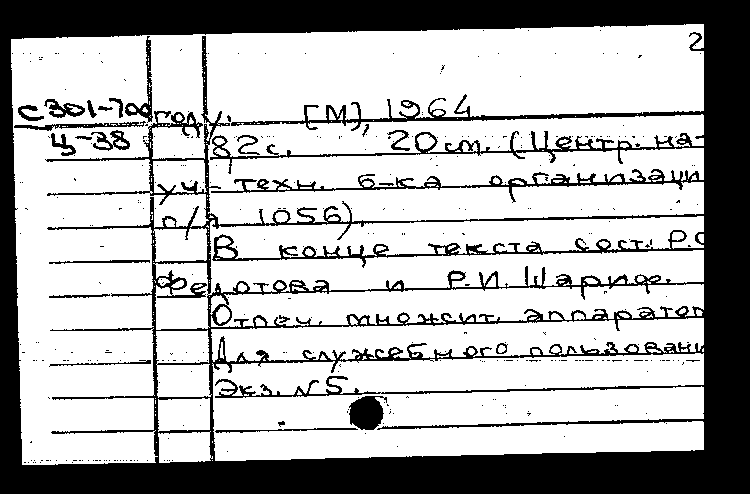 2
С301-700 году. [М], 1964.
Ц-38 82с. 20см. (Центр. на-
уч.-техн. б-ка организаци
п/я 1056).
В конце текста сост.: Р.С
Федотова и Р.И. Шариф.
Отпеч. множит. аппаратом
Для служебного пользовани
Экз. N5.